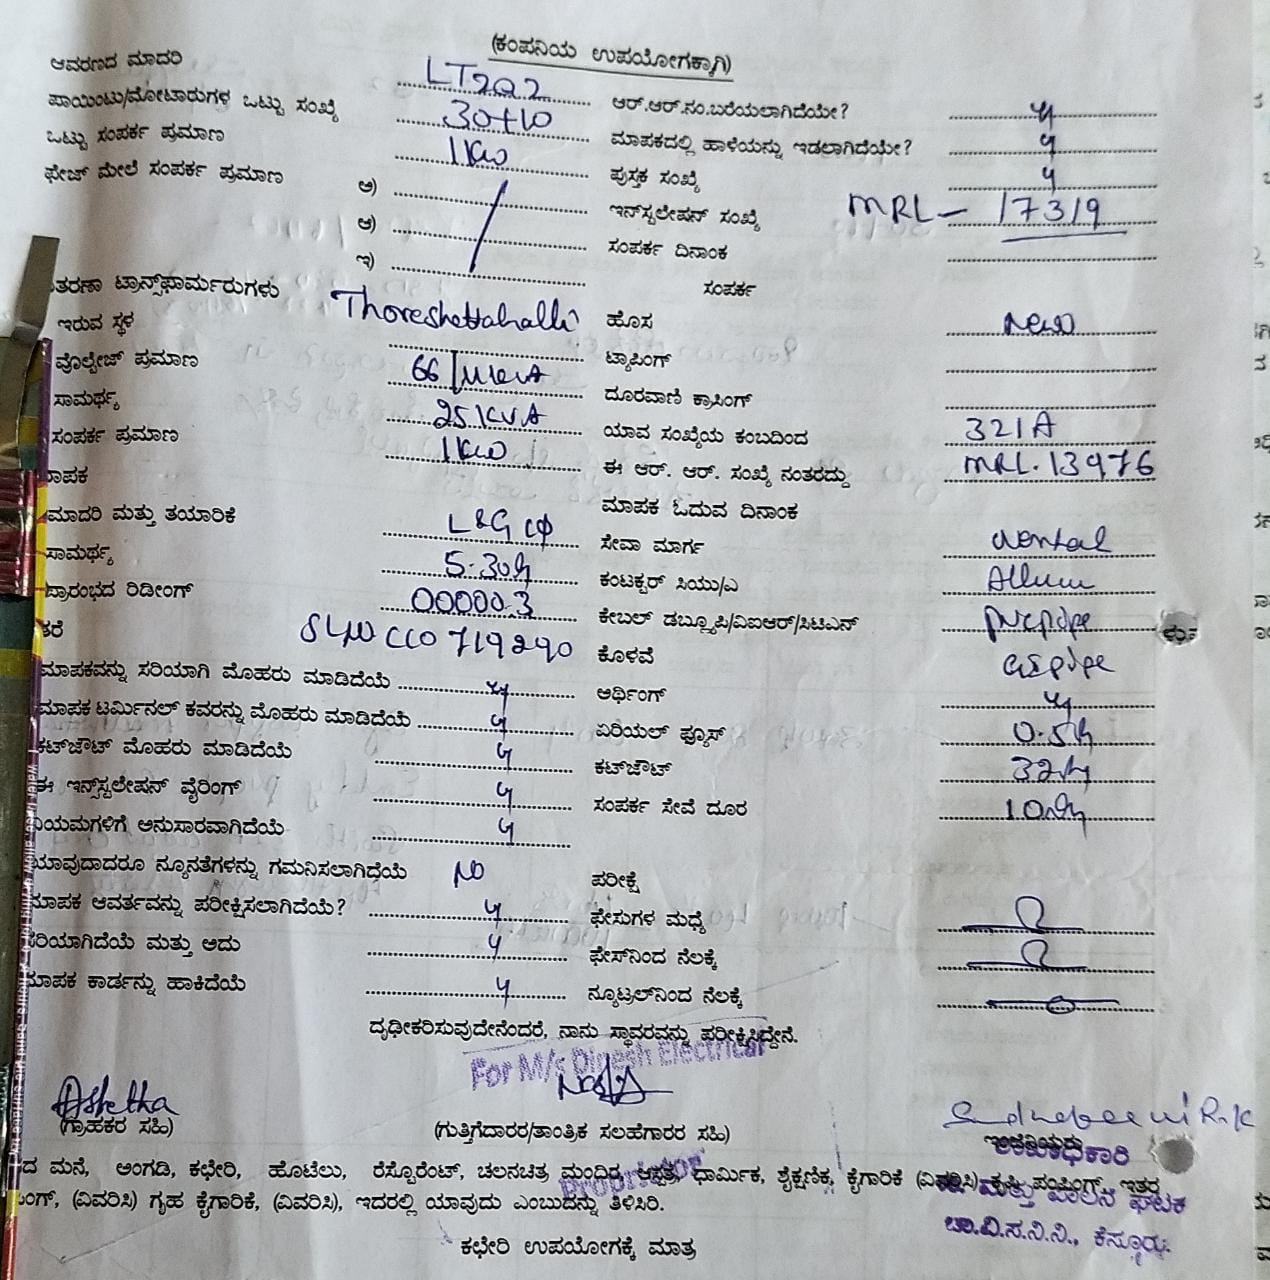 (ಕಂಪನಿಯ ಉಪಯೋಗಕ್ಕಾಗಿ)
ಆವರಣದ ಮಾದರಿ LT2a2 ಆರ್.ಆರ್.ನಂ.ಬರೆಯಲಾಗಿದೆಯೇ? y
ಪಾಯಿಂಟು/ಮೋಟಾರುಗಳ ಒಟ್ಟು ಸಂಖ್ಯೆ 30+10 ಮಾಪಕದಲ್ಲಿ ಹಾಳೆಯನ್ನು ಇಡಲಾಗಿದೆಯೇ? y
ಒಟ್ಟು ಸಂಪರ್ಕ ಪ್ರಮಾಣ 1Kw ಪುಸ್ತಕ ಸಂಖ್ಯೆ y
ಫೇಜ್ ಮೇಲೆ ಸಂಪರ್ಕ ಪ್ರಮಾಣ ಅ) ಇನ್‌ಸ್ಟಲೇಷನ್ ಸಂಖ್ಯೆ MRL - 17319
ಆ) ಸಂಪರ್ಕ ದಿನಾಂಕ
ಇ) ಸಂಪರ್ಕ
ತರಣಾ ಟ್ರಾನ್ಸ್‌ಫಾರ್ಮರುಗಳು
ಇರುವ ಸ್ಥಳ Thoreshettahalli ಹೊಸ New
ವೊಲ್ಟೇಜ್ ಪ್ರಮಾಣ 66/11KVA ಟ್ಯಾಪಿಂಗ್
ಸಾಮರ್ಥ್ಯ 25KVA ದೂರವಾಣಿ ಕ್ರಾಸಿಂಗ್
ಸಂಪರ್ಕ ಪ್ರಮಾಣ 1Kw ಯಾವ ಸಂಖ್ಯೆಯ ಕಂಬದಿಂದ 321A
ಮಾಪಕ ಈ ಆರ್. ಆರ್. ಸಂಖ್ಯೆ ನಂತರದ್ದು MRL.13976
ಮಾದರಿ ಮತ್ತು ತಯಾರಿಕೆ L&G ಮಾಪಕ ಓದುವ ದಿನಾಂಕ
ಸಾಮರ್ಥ್ಯ 5-30A ಸೇವಾ ಮಾರ್ಗ
ಪ್ರಾರಂಭದ ರಿಡೀಂಗ್ 00000.3 ಕಂಟಕ್ಟರ್ ಸಿಯು/ಎ
ಕೇಬಲ್ ಡಬ್ಲ್ಯೂಪಿ/ವಿಐಆರ್/ಸಿಟಿಎನ್ pvcpipe
ತರೆ CC0719290 ಕೊಳವೆ GIpipe
ಮಾಪಕವನ್ನು ಸರಿಯಾಗಿ ಮೊಹರು ಮಾಡಿದೆಯೆ y ಅರ್ಥಿಂಗ್ y
ಮಾಪಕ ಟರ್ಮಿನಲ್ ಕವರನ್ನು ಮೊಹರು ಮಾಡಿದೆಯೆ y ಏರಿಯಲ್ ಫ್ಯೂಸ್
ಕಟ್‌ಔಟ್ ಮೊಹರು ಮಾಡಿದೆಯೆ y ಕಟ್‌ಔಟ್ 32A
ಈ ಇನ್ಸ್‌ಸ್ಟಲೇಷನ್ ವೈರಿಂಗ್ y ಸಂಪರ್ಕ ಸೇವೆ ದೂರ
ನಿಯಮಗಳಿಗೆ ಅನುಸಾರವಾಗಿದೆಯೆ y
ಯಾವುದಾದರೂ ನ್ಯೂನತೆಗಳನ್ನು ಗಮನಿಸಲಾಗಿದೆಯೆ NO ಪರೀಕ್ಷೆ
ಮಾಪಕ ಆವರ್ತವನ್ನು ಪರೀಕ್ಷಿಸಲಾಗಿದೆಯೆ? y ಫೇಸುಗಳ ಮಧ್ಯೆ
ಸರಿಯಾಗಿದೆಯೆ ಮತ್ತು ಅದು y ಫೇಸ್‌ನಿಂದ ನೆಲಕ್ಕೆ
ಮಾಪಕ ಕಾರ್ಡನ್ನು ಹಾಕಿದೆಯೆ y ನ್ಯೂಟ್ರಲ್‌ನಿಂದ ನೆಲಕ್ಕೆ
ದೃಢೀಕರಿಸುವುದೇನೆಂದರೆ, ನಾನು ಸ್ಥಾವರವನ್ನು ಪರೀಕ್ಷಿಸಿದ್ದೇನೆ.
For M/s Dinesh Electrical
(ಗ್ರಾಹಕರ ಸಹಿ) (ಗುತ್ತಿಗೆದಾರರ/ತಾಂತ್ರಿಕ ಸಲಹೆಗಾರರ ಸಹಿ)
ದ ಮನೆ, ಅಂಗಡಿ, ಕಛೇರಿ, ಹೊಟೆಲು, ರೆಸ್ಟೊರೆಂಟ್, ಚಲನಚಿತ್ರ ಮಂದಿರ, ಆಸ್ಪತ್ರೆ, ಧಾರ್ಮಿಕ, ಶೈಕ್ಷಣಿಕ, ಕೈಗಾರಿಕೆ (ವಿವರಿಸಿ) ಕೃಷಿ ಪಂಪಿಂಗ್, ಇತರ
Proprietor
ಂಗ್, (ವಿವರಿಸಿ) ಗೃಹ ಕೈಗಾರಿಕೆ, (ವಿವರಿಸಿ), ಇದರಲ್ಲಿ ಯಾವುದು ಎಂಬುದನ್ನು ತಿಳಿಸಿರಿ.
ಮತ್ತು ಪಾಲನೆ ಘಟಕ
ಚಾ.ವಿ.ಸ.ನಿ.ನಿ., ಕೆಸ್ತೂರು.
ಕಛೇರಿ ಉಪಯೋಗಕ್ಕೆ ಮಾತ್ರ